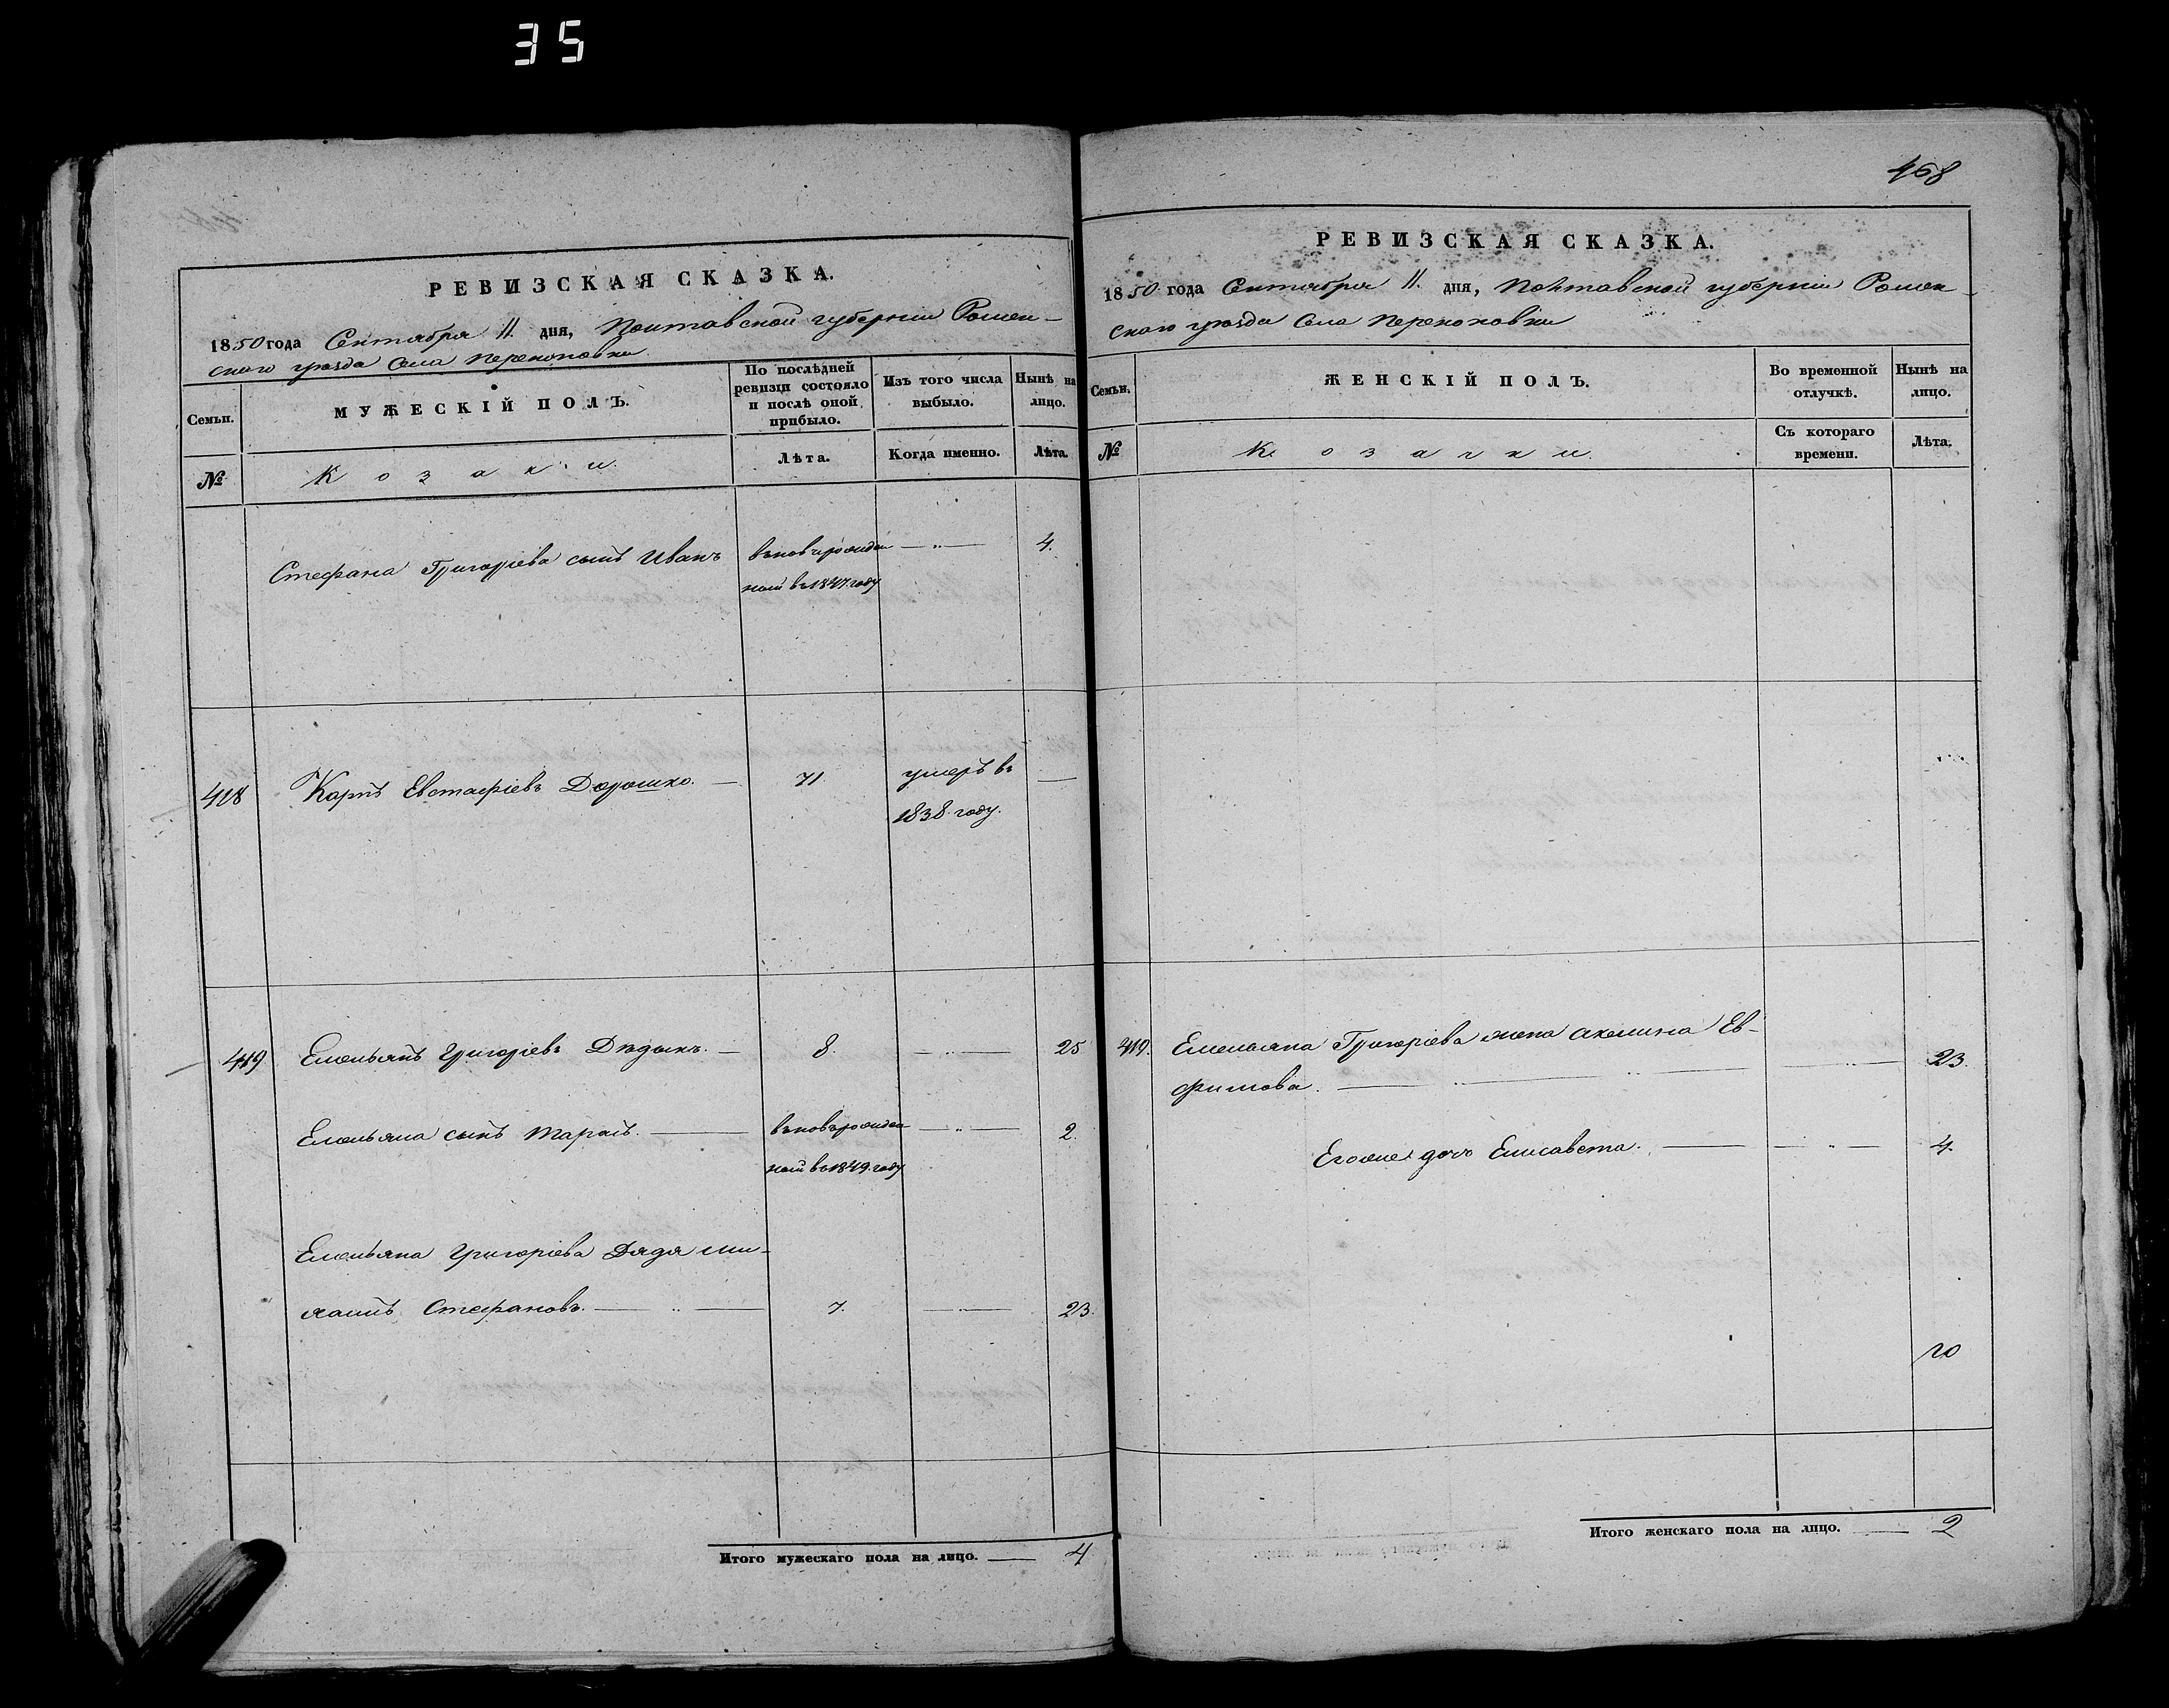 35
468
РЕВИЗСКАЯ СКАЗКА.
1850 года Сентября 11. дня, Полтавской губернiи Ромен-
скаго уѣзда Села Перекоповки
Семьи.
МУЖЕСКІЙ ПОЛЪ.
По послѣдней
ревизіи состояло
и послѣ оной
прибыло.
Изъ того числа
выбыло.
Нынѣ на
лицо.
№
Козаки.
Лѣта.
Когда именно.
Лѣта.
Стефана Григорiева сынъ Иванъ
вновь рожден
ной въ 1847 году
4.
418
Карпъ Евстафiевъ Дорошко.
71
умеръ въ
1838 году.
419
Емельянъ Григорiевъ Дѣдыкъ.
8.
25
Емельяна сынъ Тарасъ.
вновь рожден
ной въ 1849 году
2.
Емельяна Григорiева Дядя
Стефановъ.
7.
23.
Итого мужескаго пола на лицо. 4
РЕВИЗСКАЯ СКАЗКА.
1850 года Сентября 11. дня, Полтавской губернiи Ромен-
скаго уѣзда Села Перекоповки
Семьи.
ЖЕНСКІЙ ПОЛЪ.
Во временной
отлучкѣ.
Нынѣ на
лицо.
№
Козачки.
Съ котораго
времени.
Лѣта.
419.
Емельяна Григорiева жена Акелина Ев-
фимова.
23.
Егоже дочь Елисавета.
4.
Итого женскаго пола на лицо. 2